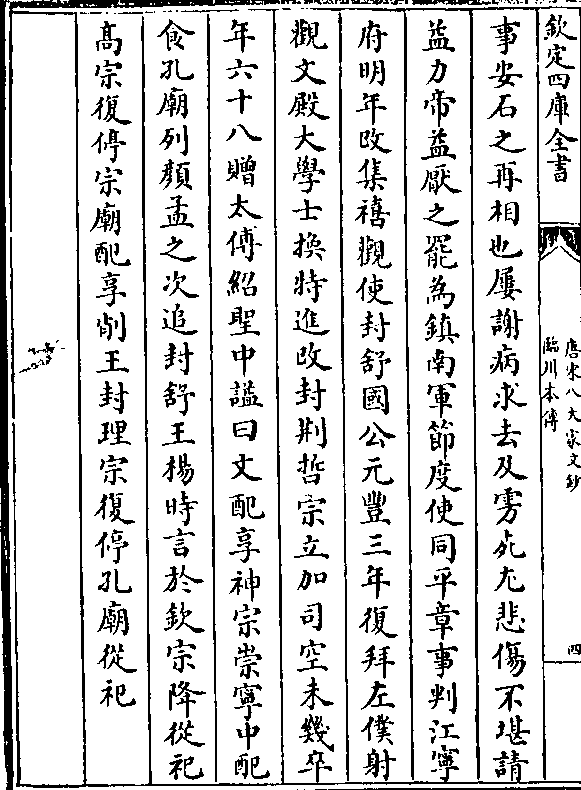 欽定四庫全書
唐宋八大家文鈔
臨川本傳
四
事安石之再相也屢謝病求去及雱死尤悲傷不堪請
益力帝益厭之罷為鎮南軍節度使同平章事判江寧
府明年改集禧觀使封舒國公元豐三年復拜左僕射
觀文殿大學士換特進改封荆哲宗立加司空未幾卒
年六十八贈太傅紹聖中謚曰文配享神宗崇寧中配
食孔廟列顔孟之次追封舒王楊時言於欽宗降從祀
髙宗復停宗廟配享削王封理宗復停孔廟從祀